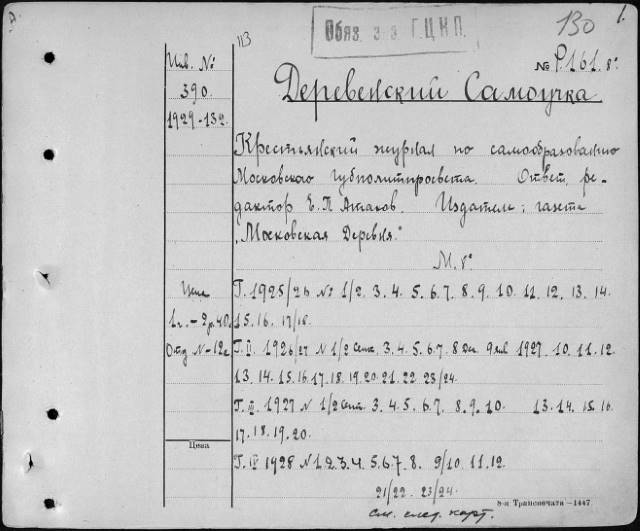 1.
130
Обяз. экз Г.Ц.К.П.
113
№ Р.161. 8°
Инв. №
390.
1929-132
Деревенский Самоучка
Крестьянский журнал по самообразованию
Московского Губполитпросвета. Ответ. ре-
дактор Е. П. Атаков. Издатель: газета
„Московская Деревня."
М. 8°
Цена
1 г. - 2 р. 40.
Отд № - 12 к
Г. 1925/26 № 1/2. 3. 4. 5. 6. 7. 8. 9. 10. 11. 12. 13. 14.
15. 16. 17/18.
Г. II. 1926/27 № 1/2 Сент. 3. 4. 5. 6. 7. 8 Дек 9 янв 1927. 10. 11. 12
13. 14. 15. 16. 17. 18. 19. 20. 21. 22. 23/24.
Г. III 1927 № 1/2 Сент 3. 4. 5. 6. 7. 8. 9. 10. 13. 14. 15. 16
17. 18. 19. 20.
Цена
Г. IV 1928 № 1. 2. 3. 4. 5. 6. 7. 8. 9/10. 11. 12.
21/22. 23/24.
см. след. карт.
8-я Транспечати—1447.